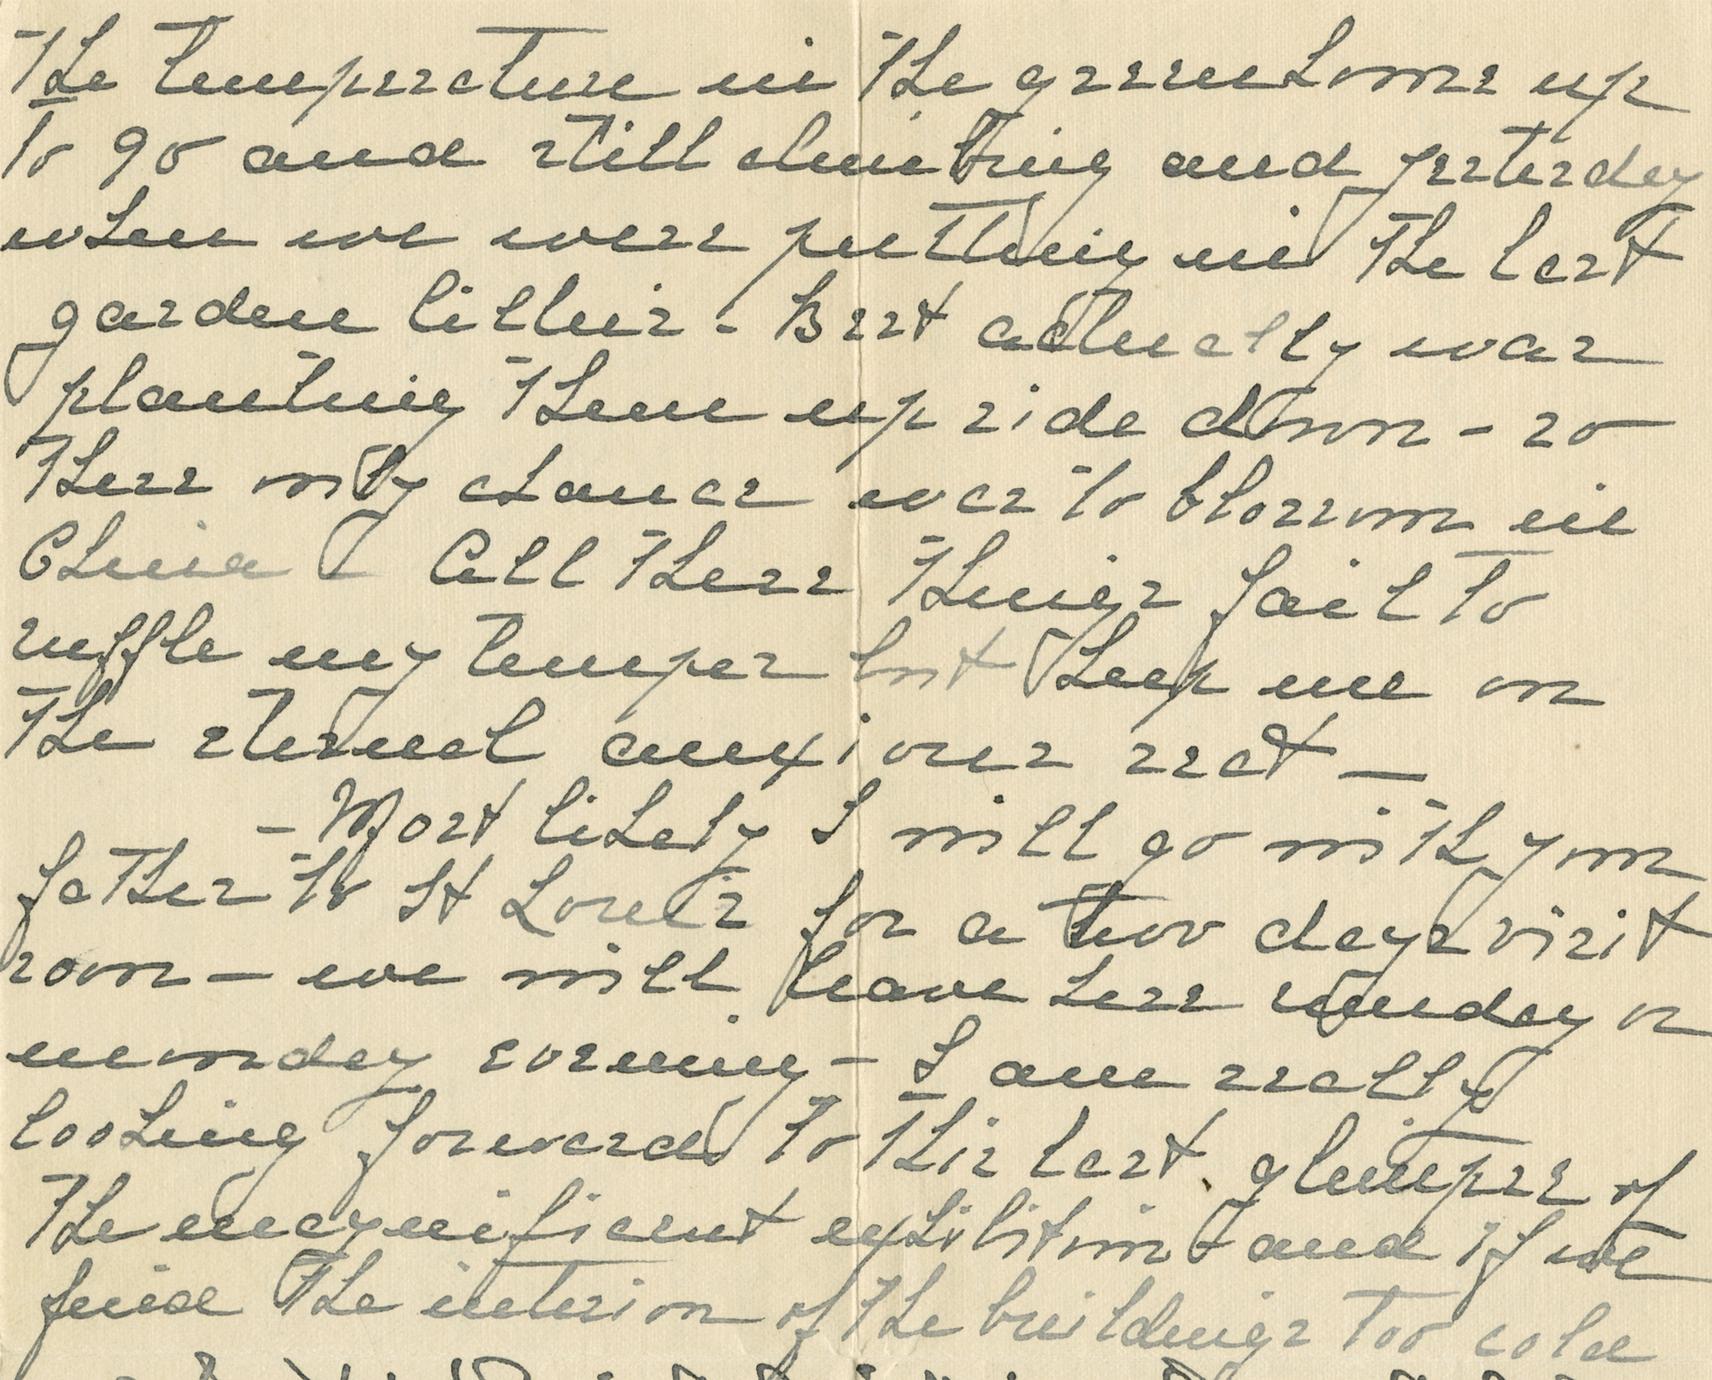 The temperature in the greenhouse up
to 90 and still climbing and yesterday
when we were putting in the last
garden lillies - Bert actually was
planting them upside down - so
there only chance was to blossom in
China - All these things fail to
ruffle my temper but keep me on
the eternal anxious seat -
- Most likely I will go with your
father to St Louis for a two days visit
soon - we will leave here sunday or
monday evening - I am really
looking forward to this last glimpse of
the magnificent exhibition - and if we
find the interior of the buildings too cold